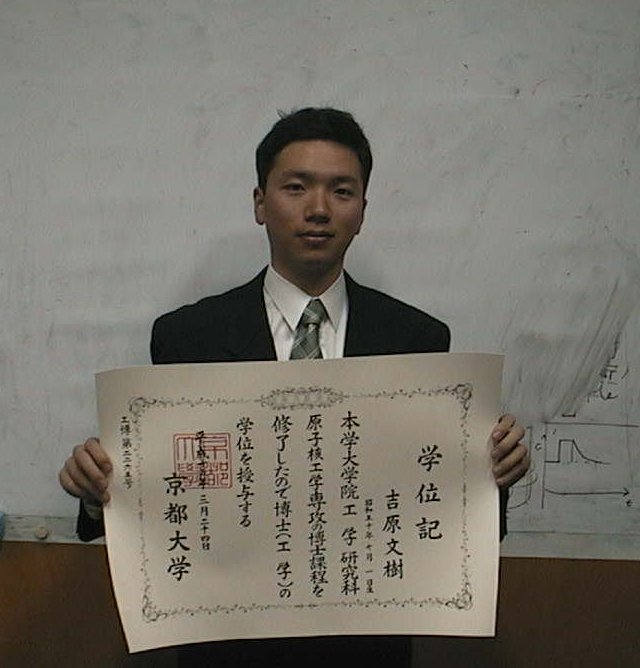 学位記
吉原文樹
昭和五十年七月一日生
本学大学院工学研究科
原子核工学専攻の博士課程を
修了したので博士（工学）の
学位を授与する
三月二十四日
京都大学
工博第二二六五号